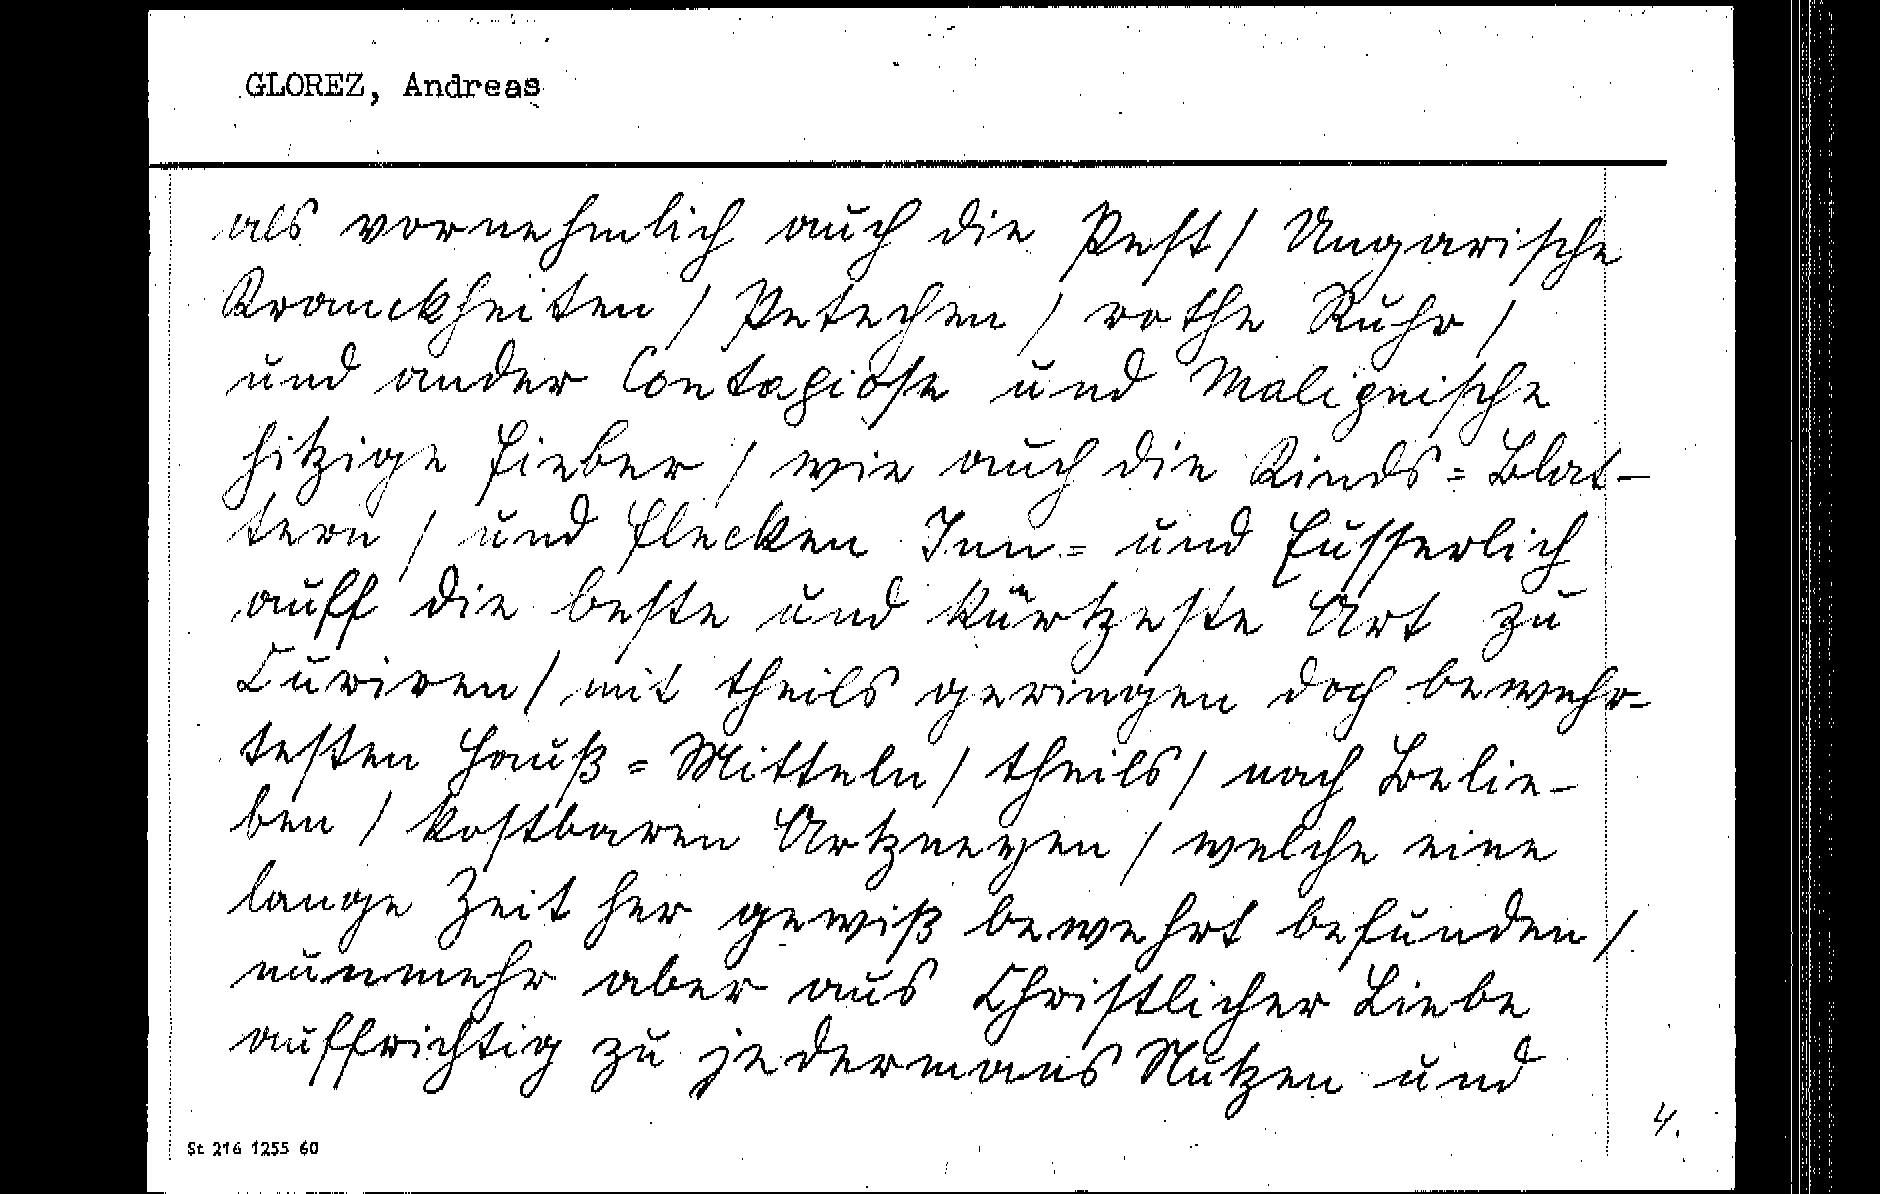 GLOREZ, Andreas
als vornehmlich auch die Pest / Ungarische
Kranckheiten / Petechen / rothe Ruhr /
und ander Contagiose und Malignische
hitzige Fieber / wie auch die Kinds=Blat-
tern / und Flecken Inn= und Eusserlich
auff die beste und kürtzeste Art zu
Curiren / mit theils geringen doch bewehr-
testen Hauß=Mitteln / theils / nach Belie-
ben / kostbaren Artzneyen / welche eine
lange Zeit her gewiß bewehrt befunden /
nunmehr aber aus Christlicher Liebe
auffrichtig zu jedermans Nutzen und
4.
St 216 1255 60